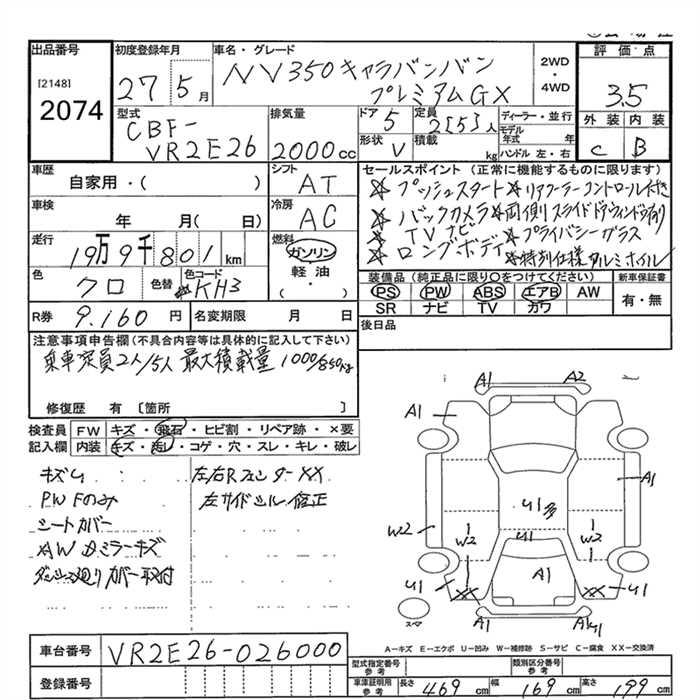 出品番号
[2148]
2074
初度登録年月
27 5月
車名・グレード
NV350キャラバンバン
プレミアムGX
2WD
・
4WD
評価点
3.5
外装 内装
C B
型式
CBF-
VR2E26
排気量
2000cc
ドア
5
形状
V
定員
2[5]人
積載
kg
ディーラー・並行
モデル年式 年
ハンドル 左・右
車歴
自家用・( )
シフト
AT
車検
年 月( 日)
冷房
AC
走行
19万9千801km
燃料
ガソリン
軽油
・
( )
色
クロ
色替
色コード
KH3
R券
9,160円
名変期限 月 日
セールスポイント(正常に機能するものに限ります)
☆プッシュスタート☆リアクーラーコントロール付き
☆バックカメラ☆両側スライドドアウィンドウ有り
☆TVナビ ☆プライバシーガラス
☆ロングボディ☆特別仕様アルミホイル
装備品(純正品に限り○をつけてください)
PS PW ABS エアB AW
SR ナビ TV カワ
新車保証書
有・無
後日品
注意事項申告欄(不具合内容等は具体的に記入して下さい)
乗車定員2人/5人 最大積載量1000/850kg
修復歴 有 [箇所 ]
検査員記入欄
FW キズ・飛石・ヒビ割・リペア跡・×要
内装 キズ・汚レ・コゲ・穴・スレ・キレ・破レ
キズム
PWFのみ
シートカバー
AWドミラーキズ
ダッシュ廻りカバー取付
左右RフェンダーXX
左サイドシル修正
A1 A2
A1
A1
U1多
W2 W2 U1 W2
A1
U1 XX XX U1
A1 A1
スペア
A-キズ E-エクボ U-凹み W-補修跡 S-サビ C-腐食 XX-交換済
車台番号
VR2E26-026000
登録番号
型式指定番号
参考
類別区分番号
参考
車庫証明用
参考
長さ 469cm 幅 169cm 高さ 199cm